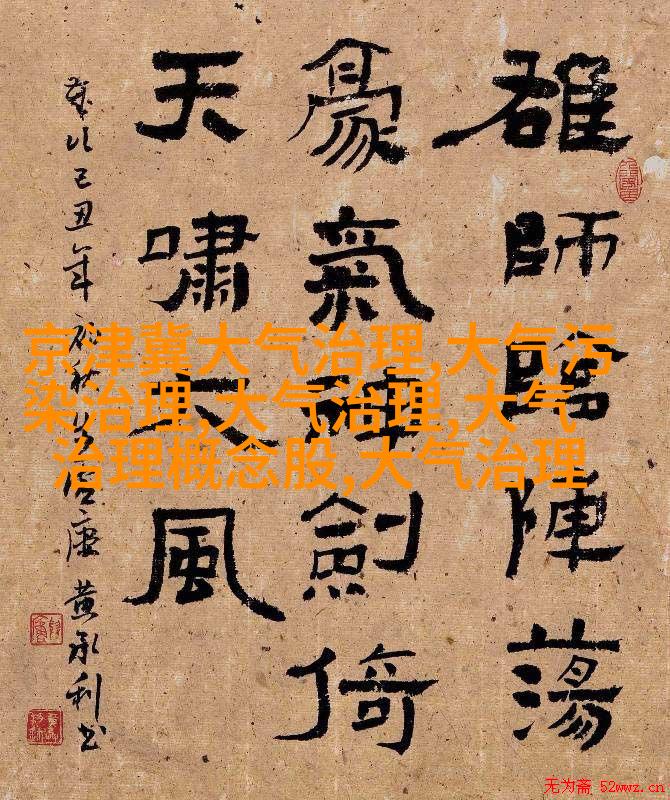 雄師臨陣蕩
豪氣劍倚
天嘯大風
歲次己丑年初秋康黄承利书
京津冀大气治理,大气污
染治理,大气治理,大气
治理概念股,大气治理
无为斋 52wwz.cn